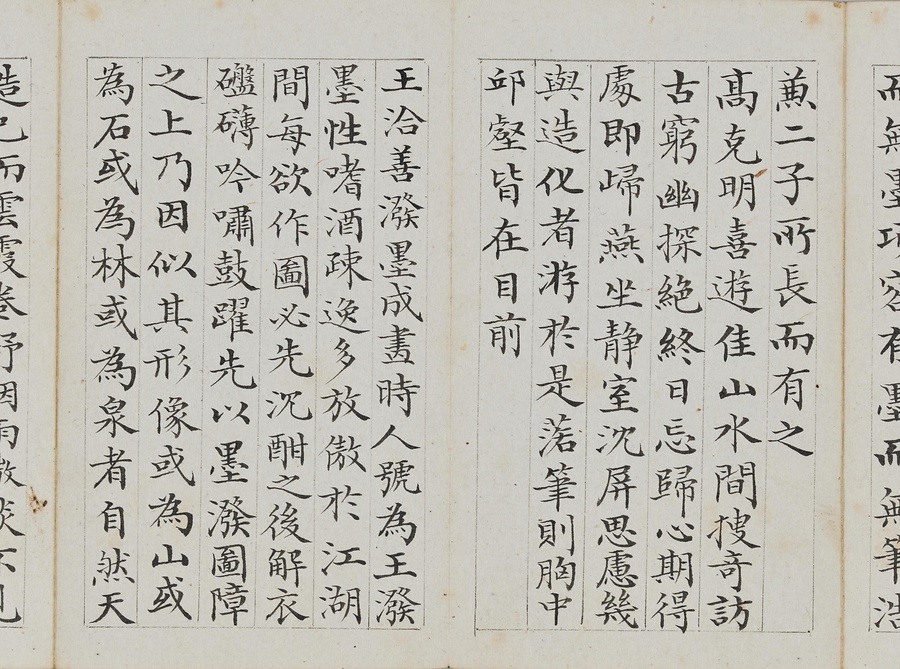 而無墨項容有墨而無筆浩
兼二子所長而有之
高克明喜遊佳山水間搜奇訪
古窮幽探絶終日忘歸心期得
處即歸燕坐靜室沈屏思慮幾
與造化者游於是落筆則胸中
邱壑皆在目前
王洽善潑墨成畫時人號為王潑
墨性嗜酒疎逸多放傲於江湖
間每欲作圖必先沉酣之後解衣
礛礴吟嘯鼓躍先以墨潑圖障
之上乃因似其形像或為山或
為石或為林或為泉者自然天
造已而雲霞卷舒雨淡不見